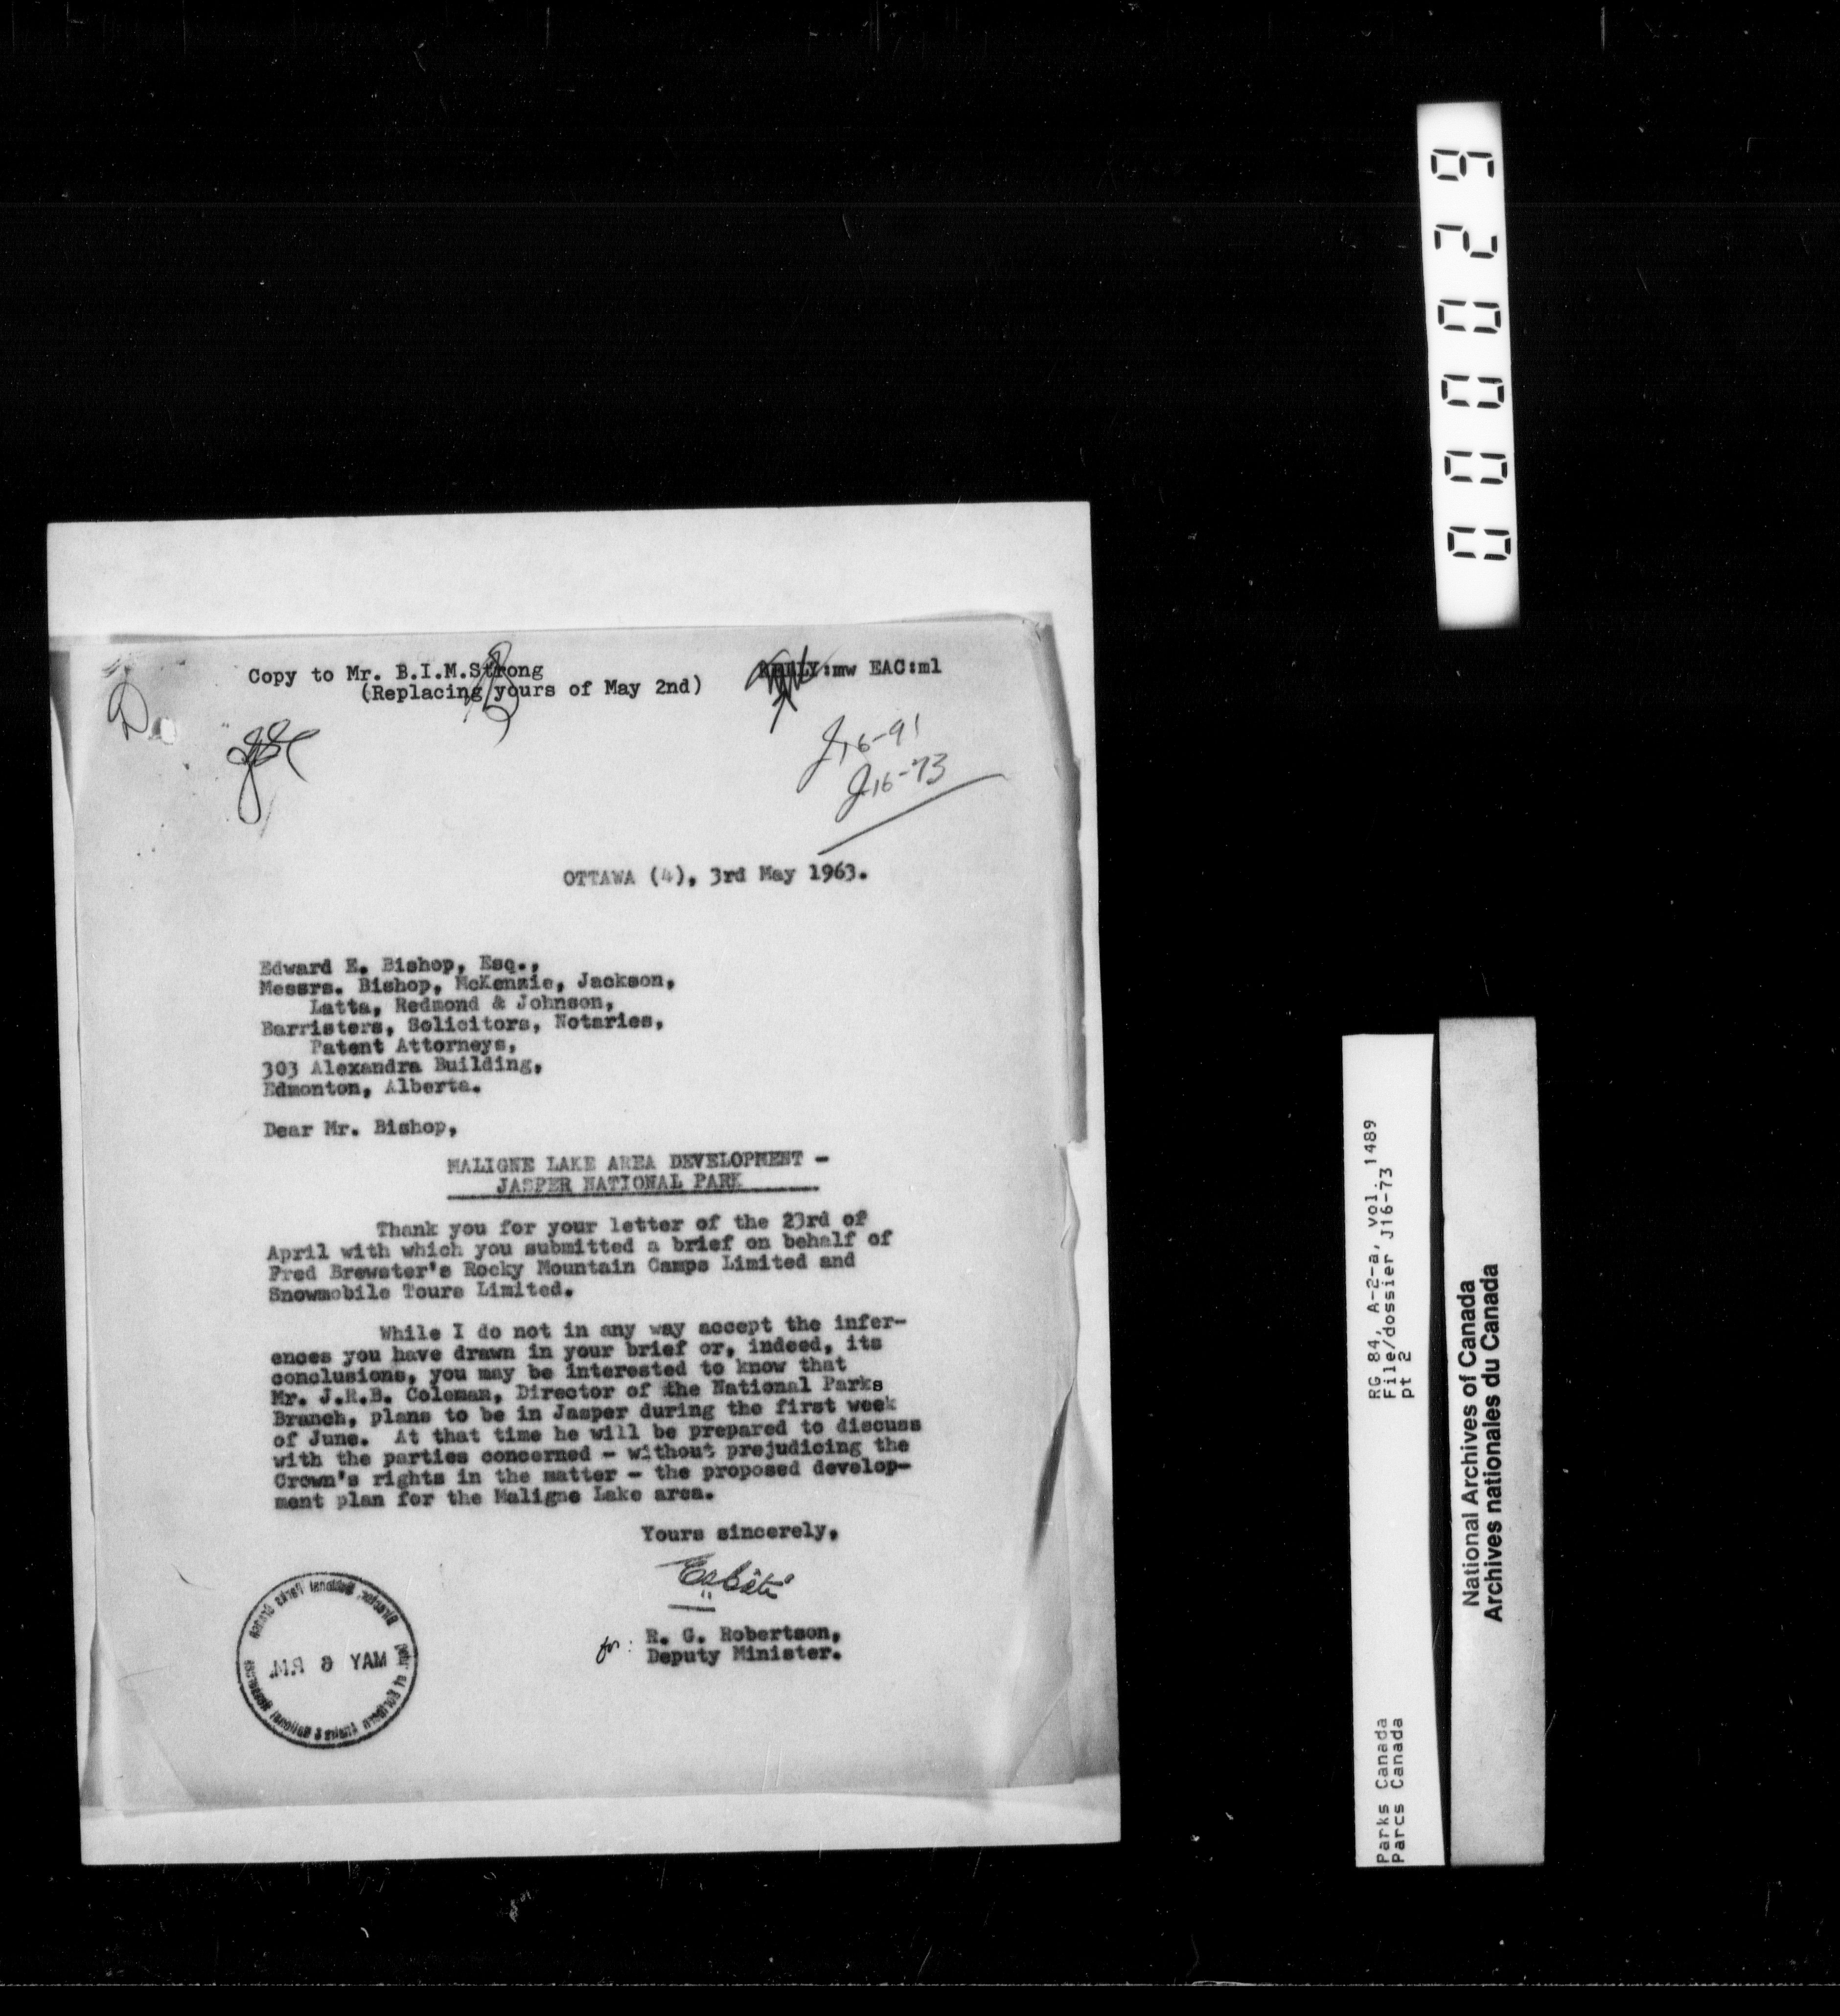 Copy to Mr. B.I.M.Strong
(Replacing yours of May 2nd)
:mw EAC:ml
J16-91
J16-73
OTTAWA (4), 3rd May 1963.
Edward E. Bishop, Esq.,
Messrs. Bishop, McKenzie, Jackson,
Latta, Redmond & Johnson,
Barristers, Solicitors, Notaries,
Patent Attorneys,
303 Alexandra Building,
Edmonton, Alberta.
Dear Mr. Bishop,
MALIGNE LAKE AREA DEVELOPMENT -
JASPER NATIONAL PARK
Thank you for your letter of the 23rd of
April with which you submitted a brief on behalf of
Fred Brewster's Rocky Mountain Camps Limited and
Snowmobile Tours Limited.
While I do not in any way accept the infer-
ences you have drawn in your brief or, indeed, its
conclusions, you may be interested to know that
Mr. J.R.B. Coleman, Director of the National Parks
Branch, plans to be in Jasper during the first week
of June. At that time he will be prepared to discuss
with the parties concerned - without prejudicing the
Crown's rights in the matter - the proposed develop-
ment plan for the Maligne Lake area.
Yours sincerely,
for: R. G. Robertson,
Deputy Minister.
MAY 6 P.M.
000029
RG 84, A-2-a, vol. 1489
File/dossier J16-73
pt 2
Parks Canada
Parcs Canada
National Archives of Canada
Archives nationales du Canada